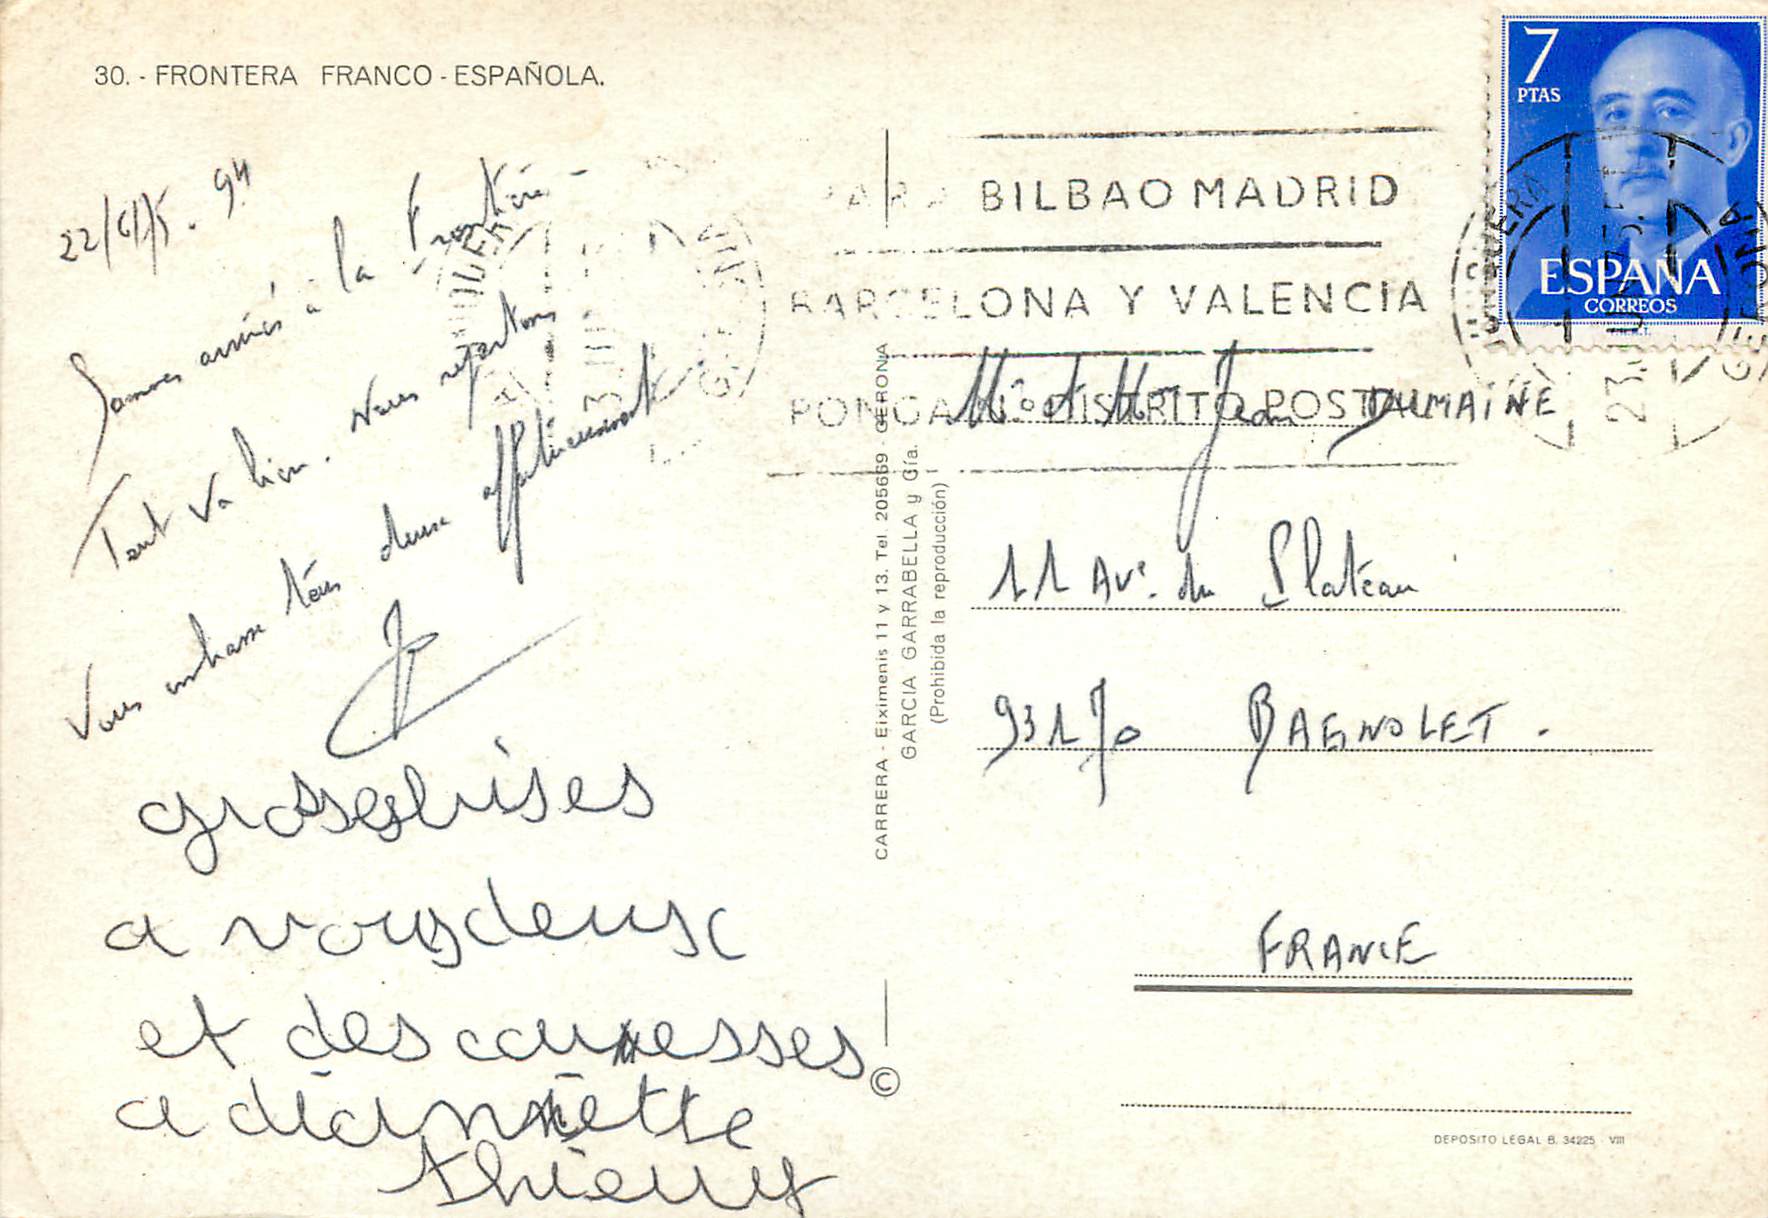 30. - FRONTERA FRANCO - ESPAÑOLA.
22/6/75. 9H
Sommes arrivés à la Frontière -
Tout va bien. Nous repartons
Vous embrasse tous deux affectueusement
grosses bises
a vous deux
et des caresses
a diannette
thierry
CARRERA - Eiximenis 11 y 13. Tel. 205669 - GERONA
GARCIA GARRABELLA y Cía.
(Prohibida la reproducción)
©
7
PTAS
ESPAÑA
CORREOS
PARA BILBAO MADRID
BARCELONA Y VALENCIA
PONGA N.º DISTRITO POSTAL
JUNQUERA
GERONA
23.JUN.75
Mr et Mme Jean DUMAINE
11 Ave. du Plateau
93170 BAGNOLET.
FRANCE
DEPOSITO LEGAL B. 34225 - VIII